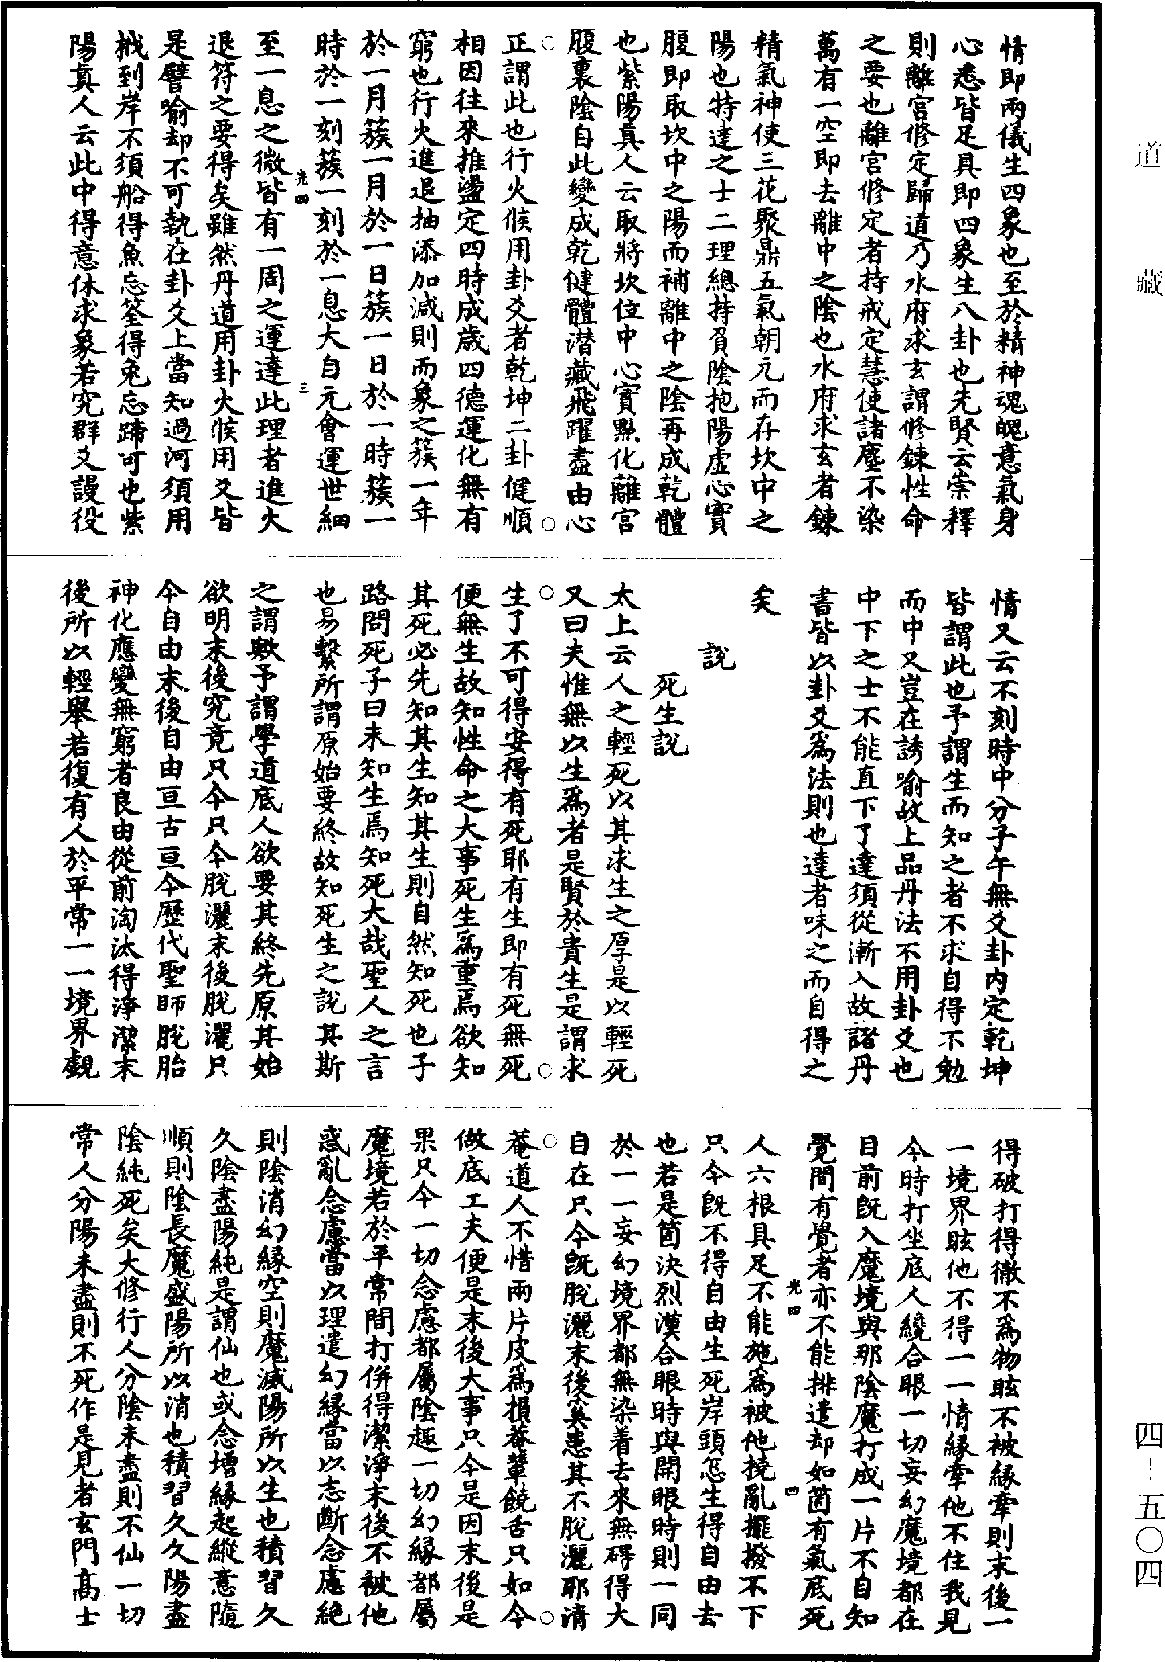 道藏
四-五〇四
情即兩儀生四象也至於精神魂魄意氣身
心悉皆足具即四象生八卦也先賢云崇釋
則離宮修定歸道乃水府求玄謂修鍊性命
之要也離宮修定者持戒定慧使諸塵不染
萬有一空即去離中之陰也水府求玄者鍊
精氣神使三花聚鼎五氣朝元而存坎中之
陽也特達之士二理總持負陰抱陽虛心實
腹即取坎中之陽而補離中之陰再成乾體
也紫陽真人云取將坎位中心實點化離宮
腹裏陰自此變成乾健體潛藏飛躍盡由心
正謂此也行火候用卦爻者乾坤二卦健順
相因往來推盪定四時成歲四德運化無有
窮也行火進退抽添加減則而象之簇一年
於一月簇一月於一日簇一日於一時簇一
時於一刻簇一刻於一息大自元會運世細
光四 三
至一息之微皆有一周之運達此理者進火
退符之要得矣雖然丹道用卦火候用爻皆
是譬喻却不可執在卦爻上當知過河須用
栰到岸不須船得魚忘筌得兔忘蹄可也紫
陽真人云此中得意休求象若究群爻謾役
情又云不刻時中分子午無爻卦內定乾坤
皆謂此也予謂生而知之者不求自得不勉
而中又豈在誘喻故上品丹法不用卦爻也
中下之士不能直下了達須從漸入故諸丹
書皆以卦爻爲法則也達者味之而自得之
矣
說
死生說
太上云人之輕死以其求生之厚是以輕死
又曰夫惟無以生爲者是賢於貴生是謂求
生了不可得安得有死耶有生即有死無死
便無生故知性命之大事死生爲重焉欲知
其死必先知其生知其生則自然知死也子
路問死子曰未知生焉知死大哉聖人之言
也易繫所謂原始要終故知死生之說其斯
之謂歟予謂學道底人欲要其終先原其始
欲明末後究竟只今只今脫灑末後脫灑只
今自由末後自由亘古亘今歷代聖師脫胎
神化應變無窮者良由從前淘汰得淨潔末
後所以輕舉若復有人於平常一一境界覷
得破打得徹不爲物眩不被緣牽則末後一
一境界眩他不得一一情緣牽他不住我見
今時打坐底人纔合眼一切妄幻魔境都在
目前既入魔境與那陰魔打成一片不自知
覺間有覺者亦不能排遣却如箇有氣底死
光四 四
人六根具足不能施爲被他撓亂擺撥不下
只今既不得自由生死岸頭怎生得自由去
也若是箇決烈漢合眼時與開眼時則一同
於一一妄幻境界都無染着去來無碍得大
自在只今既脫灑末後奚患其不脫灑耶清
菴道人不惜兩片皮爲損菴輩饒舌只如今
做底工夫便是末後大事只今是因末後是
果只今一切念慮都屬陰趣一切幻緣都屬
魔境若於平常間打併得潔淨末後不被他
惑亂念慮當以理遣幻緣當以志斷念慮絕
則陰消幻緣空則魔滅陽所以生也積習久
久陰盡陽純是謂仙也或念增緣起縱意隨
順則陰長魔盛陽所以消也積習久久陽盡
陰純死矣大修行人分陰未盡則不仙一切
常人分陽未盡則不死作是見者玄門高士